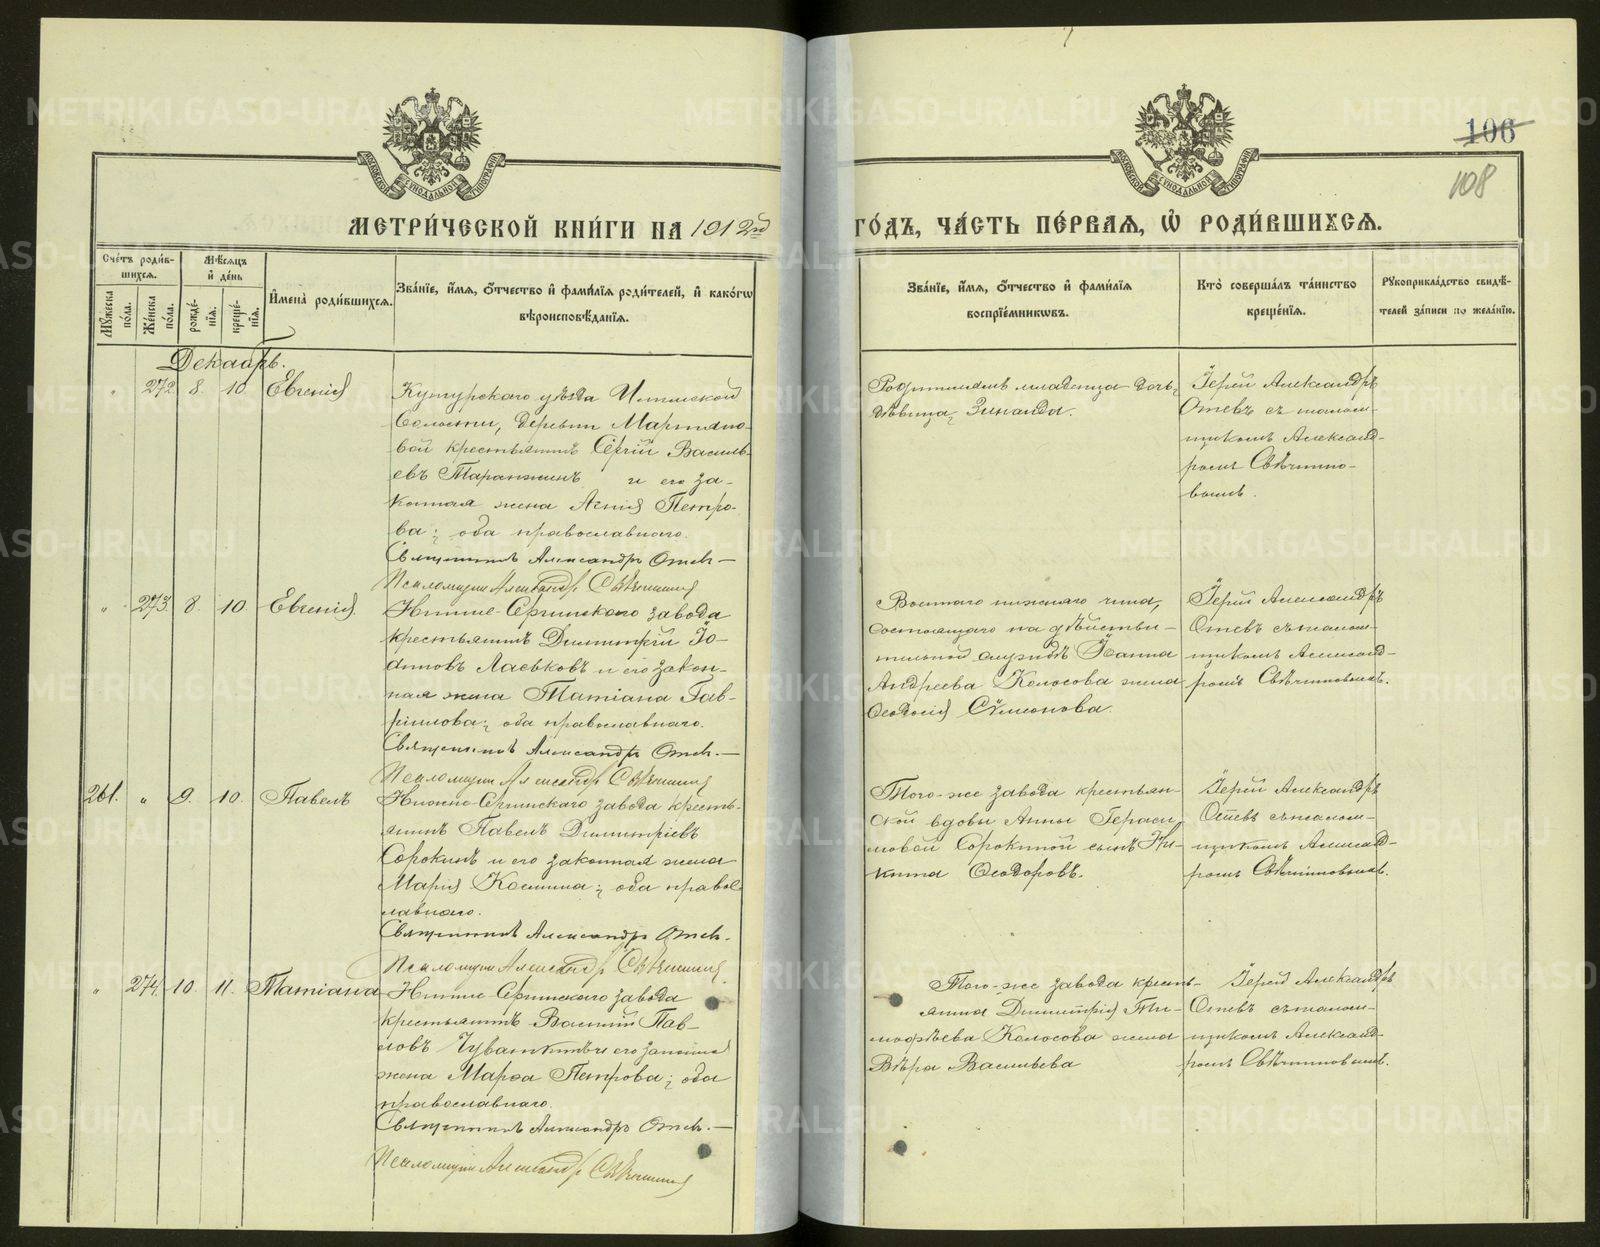 106
108
МЕТРИ́ЧЕСКОЙ КНИ́ГИ НА 1912й
ГО́ДЪ, ЧА́СТЬ ПЕ́РВАЯ, Ѽ РОДИ́ВШИХСЯ.
Сче́тъ роди́в-
шихся.
Мѣ́сяцъ
и҆ де́нь
Мꙋ́жеска
по́ла.
Же́нска
по́ла.
рожде́-
нїя.
креще́-
нїя.
И҆мена̀ роди́вшихся.
Зва́нїе, и҆́мя, ѻ҆́тчество и҆ фами́лїя роди́телей, и҆ како́гѡ
вѣроисповѣ́данїя.
Зва́нїе, и҆́мя, ѻ҆́тчество и҆ фами́лїя
воспрїе́мникѡвъ.
Кто̀ соверша́лъ та́инство
креще́нїя.
Рꙋкоприкла́дство свидѣ́-
телей за́писи по жела́нїю.
Декабрь.
" 272 8. 10. Евгенія
Кунгурскаго уѣзда
волости, деревни Мартяно-
вой крестьянинъ Сергій Василь-
евъ Таранжинъ и его за-
конная жена Агнія Петро-
ва; оба православнаго.
Священникъ Александръ Отев.
Псаломщикъ Александръ Свѣчниковъ
Родителямъ младенца дочь,
дѣвица, Зинаида.
Іерей Александръ
Отевъ съ псалом-
щикомъ Александ-
ромъ Свѣчнико-
вымъ.
" 273. 8. 10. Евгенія
Нижне-Сергинскаго завода
крестьянинъ Димитрій Іо-
анновъ Лаевковъ и его закон-
ная жена Татіана Гав-
ріилова; оба православнаго.
Священникъ Александръ Отев.
Псаломщикъ Александръ Свѣчниковъ
Военнаго нижняго чина,
состоящаго на дѣйстви-
тельной службѣ Іоанна
Андреева Колосова жена
Ѳеодосія Симеонова.
Іерей Александръ
Отевъ съ псалом-
щикомъ Александ-
ромъ Свѣчниковымъ.
261. " 9. 10. Павелъ
Нижне-Сергинскаго завода кресть-
янинъ Павелъ Димитріевъ
Сорокинъ и его законная жена
Марія Космина; оба право-
славнаго.
Священникъ Александръ Отев.
Псаломщикъ Александръ Свѣчниковъ
Того-же завода крестьян-
ской вдовы Анны Гераси-
мовой Сорокиной сынъ Ни-
кита Ѳеодоровъ.
Іерей Александръ
Отевъ съ псалом-
щикомъ Александ-
ромъ Свѣчниковымъ.
" 274. 10. 11. Татіана
Нижне-Сергинскаго завода
крестьянинъ Василій Пав-
ловъ Чуваткинъ и его законная
жена Марѳа Петрова; оба
православнаго.
Священникъ Александръ Отев.
Псаломщикъ Александръ Свѣчниковъ
Того-же завода кресть-
янина Димитрія Ти-
моѳеева Колосова жена
Вѣра Васильева
Іерей Александръ
Отевъ съ псалом-
щикомъ Александ-
ромъ Свѣчниковымъ.
METRIKI.GASO-URAL.RU